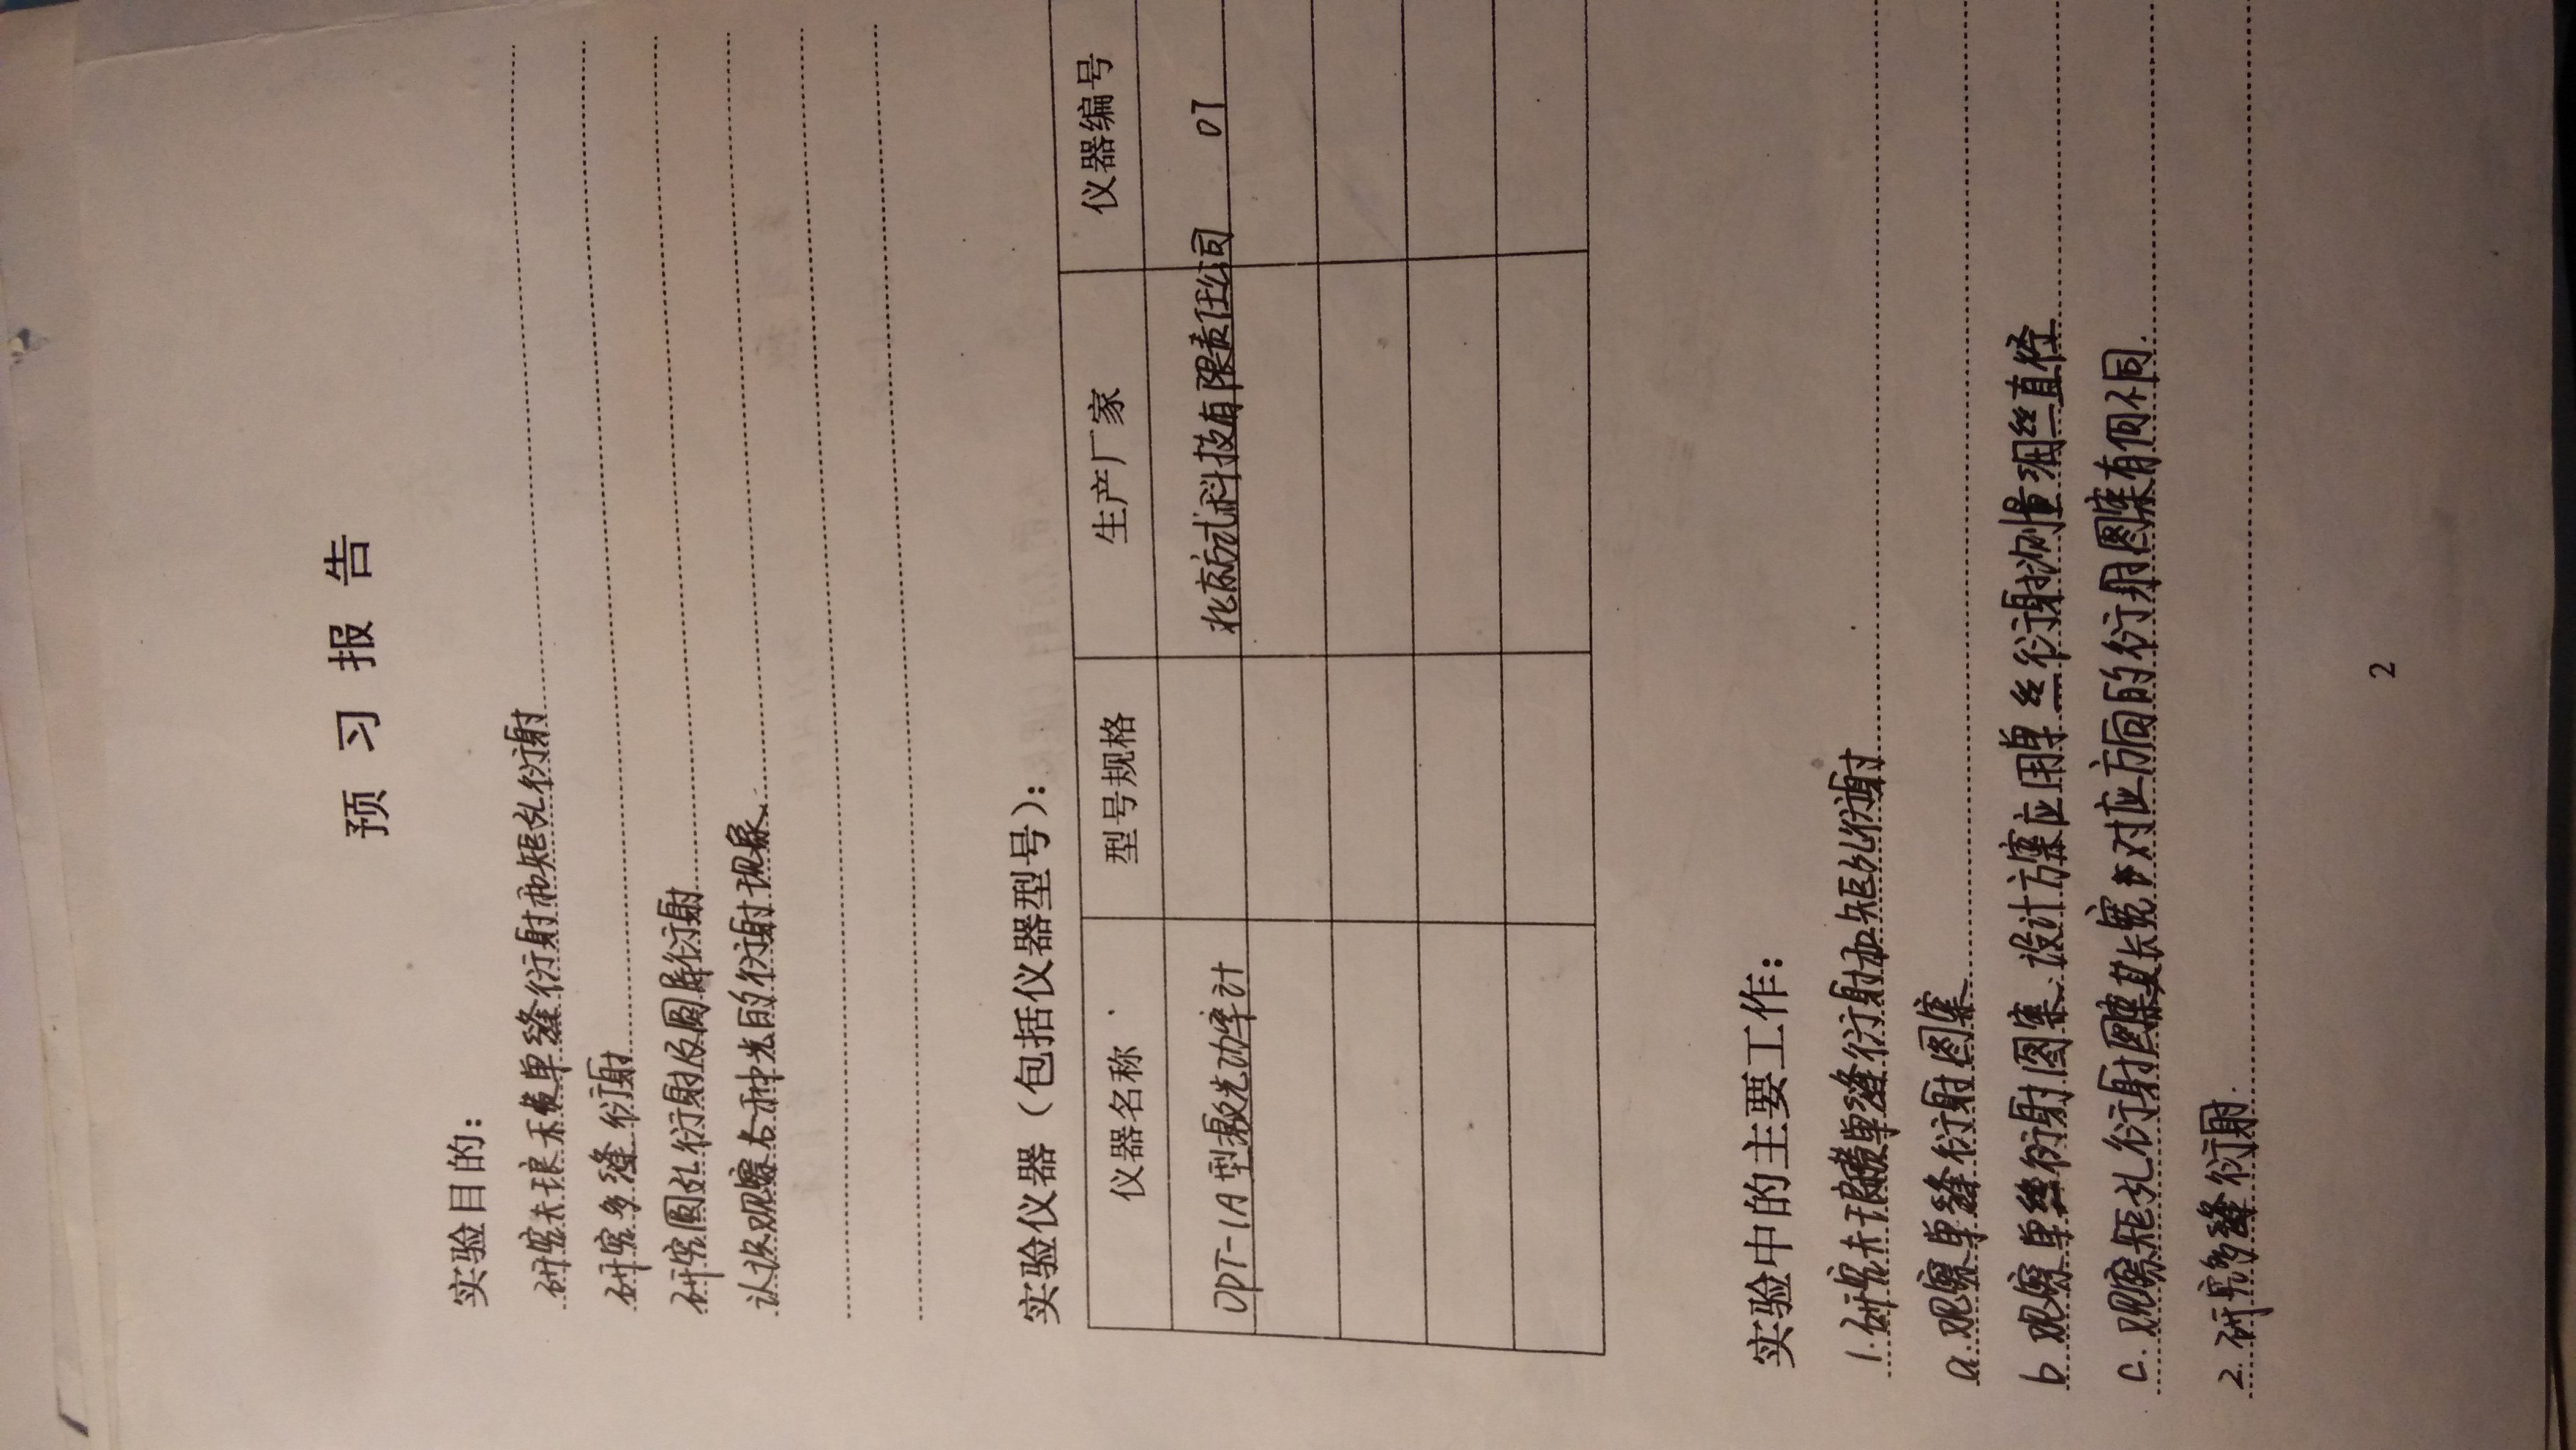 预习报告
实验目的:
研究夫琅禾费单缝衍射和矩孔衍射
研究多缝衍射
研究圆孔衍射及圆屏衍射
认识观察各种光的衍射现象.
实验仪器(包括仪器型号):
仪器名称 型号规格 生产厂家 仪器编号
OPT-1A型激光功率计 北京方式科技有限责任公司 07
实验中的主要工作:
1.研究夫琅禾费单缝衍射和矩孔衍射
a.观察单缝衍射图案
b.观察单丝衍射图案.设计方案应用单丝衍射测量细丝直径
c.观察矩孔衍射图案其长宽对应方向的衍射图案有何不同.
2.研究多缝衍射.
2